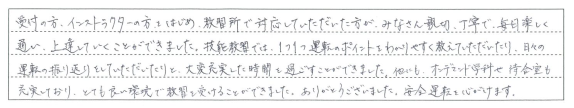 受付の方、インストラクターの方をはじめ、教習所で対応していただいた方が、みなさん親切、丁寧で、毎日楽しく
通い、上達していくことができました。技能教習では、1つ1つ運転のポイントをわかりやすく教えていただいたり、日々の
運転の振り返りをしていただいたりと、大変充実した時間を過ごすことができました。他にも、オンデマンド学科や待合室も
充実しており、とても良い環境で教習を受けることができました。ありがとうございました。安全運転を心がけます。